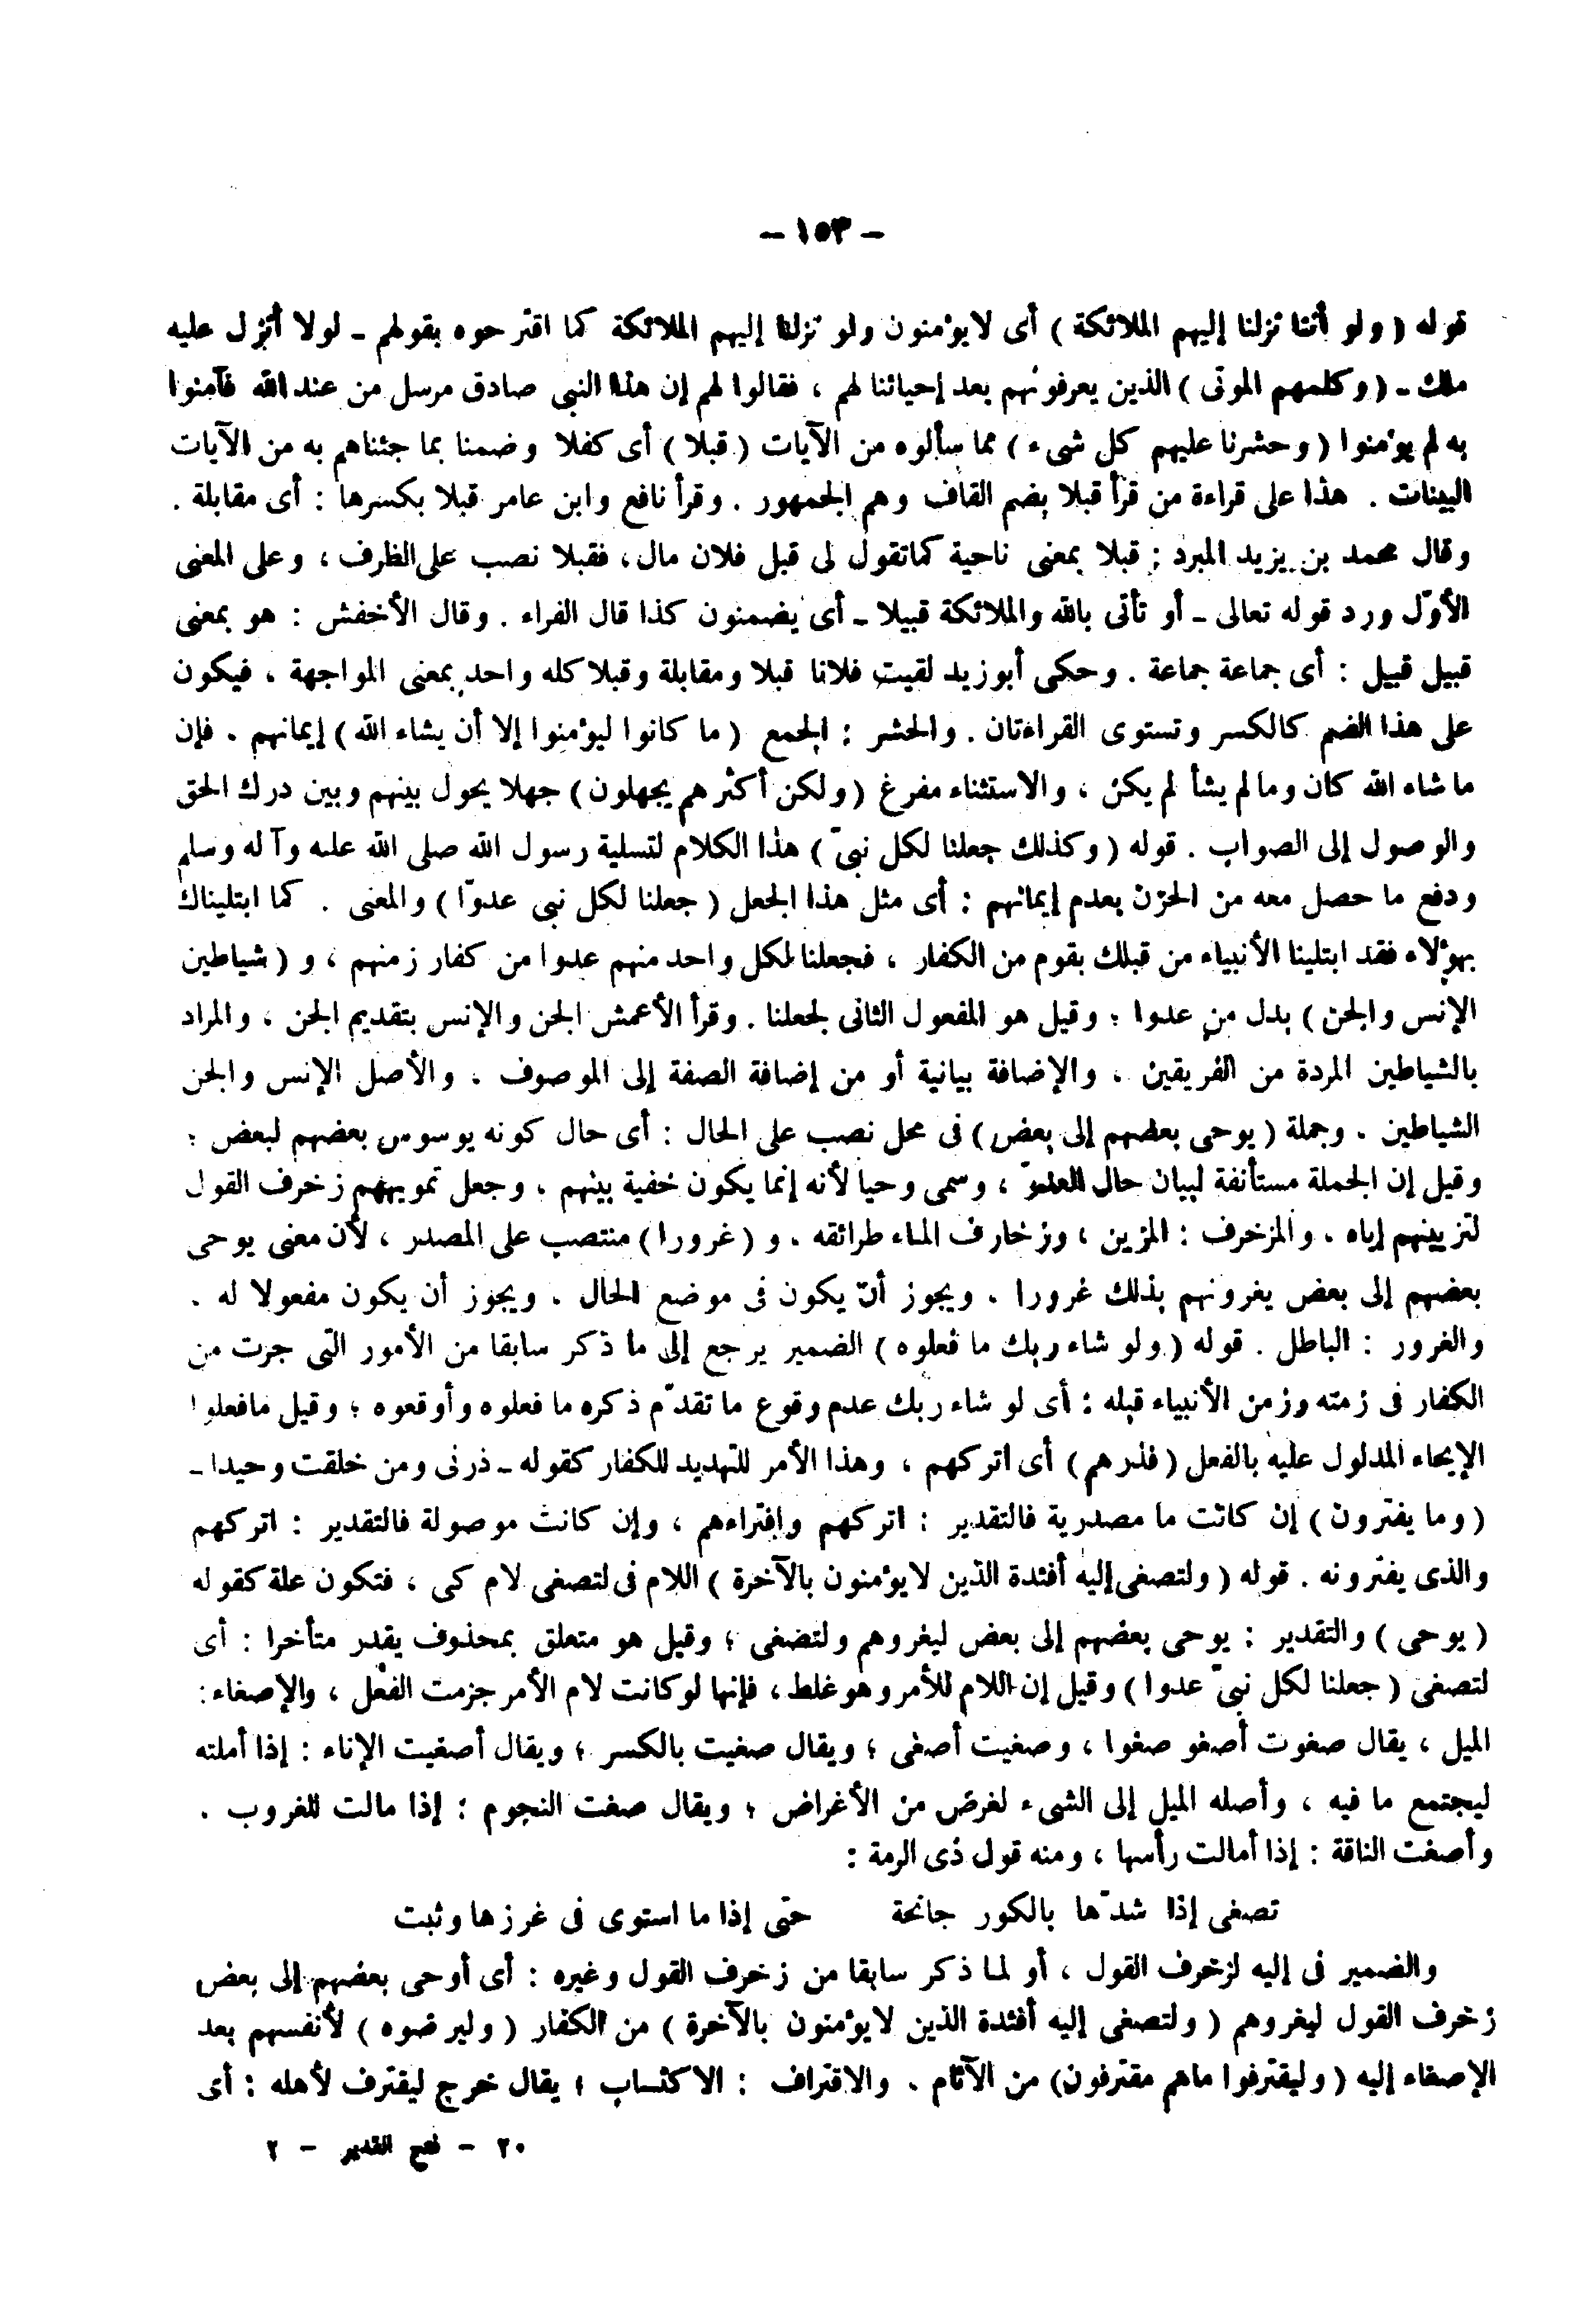 – ١٥٣ –
قوله ( ولو أننا نزلنا إليهم الملائكة ) أى لايؤمنون ولو نزلنا إليهم الملائكة كما اقترحوه بقولهم ـ لولا أنزل عليه
ملك ـ ( وكلمهم الموتى ) الذين يعرفونهم بعد إحيائنا لهم ، فقالوا لهم إن هذا النبى صادق مرسل من عند الله فآمنوا
به لم يؤمنوا ( وحشرنا عليهم كل شىء ) مما سألوه من الآيات ( قبلا ) أى كفلا وضمنا بما جئناهم به من الآيات
البينات . هذا على قراءة من قرأ قبلا بضم القاف وهم الجمهور . وقرأ نافع وابن عامر قبلا بكسرها : أى مقابلة .
وقال محمد بن يزيد المبرد : قبلا بمعنى ناحية كماتقول لى قبل فلان مال، فقبلا نصب على الظرف ، وعلى المعنى
الأوّل ورد قوله تعالى ـ أو تأتى بالله والملائكة قبيلا ـ أى يضمنون كذا قال الفراء . وقال الأخفش : هو بمعنى
قبيل قبيل : أى جماعة جماعة . وحكى أبوزيد لقيت فلانا قبلا ومقابلة وقبلا كله واحد بمعنى المواجهة ، فيكون
على هذا الضم كالكسر وتستوى القراءتان . والحشر : الجمع ( ما كانوا ليؤمنوا إلا أن يشاء الله ) إيمانهم . فإن
ماشاء الله كان ومالم يشأ لم يكن ، والاستثناء مفرغ ( ولكن أكثرهم يجهلون ) جهلا يحول بينهم وبين درك الحق
والوصول إلى الصواب . قوله ( وكذلك جعلنا لكل نبىّ ) هذا الكلام لتسلية رسول الله صلى الله عليه وآله وسلم
ودفع ما حصل معه من الحزن بعدم إيمانهم : أى مثل هذا الجعل ( جعلنا لكل نبى عدوّا ) والمعنى . كما ابتليناك
بهؤلاء فقد ابتلينا الأنبياء من قبلك بقوم من الكفار ، فجعلنا لكل واحد منهم عدوا من كفار زمنهم ، و ( شياطين
الإنس والجن ) بدل من عدوا ؛ وقيل هو المفعول الثانى لجعلنا . وقرأ الأعمش الجن والإنس بتقديم الجن ، والمراد
بالشياطين المردة من الفريقين ، والإضافة بيانية أو من إضافة الصفة إلى الموصوف . والأصل الإنس والجن
الشياطين . وجملة ( يوحى بعضهم إلى بعض ) فى محل نصب على الحال : أى حال كونه يوسوس بعضهم لبعض ؛
وقيل إن الجملة مستأنفة لبيان حال العدوّ ، وسمى وحيا لأنه إنما يكون خفية بينهم ، وجعل تمويههم زخرف القول
لتزيينهم إياه . والمزخرف : المزين ، وزخارف الماء طرائقه . و ( غرورا ) منتصب على المصدر ، لأن معنى يوحى
بعضهم إلى بعض يغرونهم بذلك غرورا . ويجوز أن يكون فى موضع الحال . ويجوز أن يكون مفعولا له .
والغرور : الباطل . قوله ( ولو شاء ربك ما فعلوه ) الضمير يرجع إلى ما ذكر سابقا من الأمور التى جرت من
الكفار فى زمنه وزمن الأنبياء قبله : أى لو شاء ربك عدم وقوع ما تقدّم ذكره ما فعلوه وأوقعوه ؛ وقيل مافعلوا
الإيحاء المدلول عليه بالفعل ( فذرهم ) أى اتركهم ، وهذا الأمر للتهديد للكفار كقوله ـ ذرنى ومن خلقت وحيدا ـ
( وما يفترون ) إن كانت ما مصدرية فالتقدير : اتركهم وافتراءهم ، وإن كانت موصولة فالتقدير : اتركهم
والذى يفترونه . قوله ( ولتصغى إليه أفئدة الذين لايؤمنون بالآخرة ) اللام فى لتصغى لام كى ، فتكون علة كقوله
( يوحى ) والتقدير : يوحى بعضهم إلى بعض ليغروهم ولتصغى ؛ وقيل هو متعلق بمحذوف يقدر متأخرا : أى
لتصغى ( جعلنا لكل نبىّ عدوا ) وقيل إن اللام للأمر وهو غلط ، فإنها لو كانت لام الأمر جزمت الفعل ، والإصغاء :
الميل ، يقال صغوت أصغو صغوا ، وصغيت أصغى ؛ ويقال صغيت بالكسر ؛ ويقال أصغيت الإناء : إذا أملته
ليجتمع ما فيه ، وأصله الميل إلى الشىء لغرض من الأغراض ؛ ويقال صغت النجوم : إذا مالت للغروب .
وأصغت الناقة : إذا أمالت رأسها ، ومنه قول ذى الرمة :
تصغى إذا شدّها بالكور جانحة حتى إذا ما استوى فى غرزها وثبت
والضمير فى إليه لزخرف القول ، أو لما ذكر سابقا من زخرف القول وغيره : أى أوحى بعضهم إلى بعض
زخرف القول ليغروهم ( ولتصغى إليه أفئدة الذين لايؤمنون بالآخرة ) من الكفار ( وليرضوه ) لأنفسهم بعد
الإصغاء إليه ( وليقترفوا ماهم مقترفون) من الآثام . والاقتراف : الاكتساب ؛ يقال خرج ليقترف لأهله : أى
٢٠ – فتح القدير – ٢